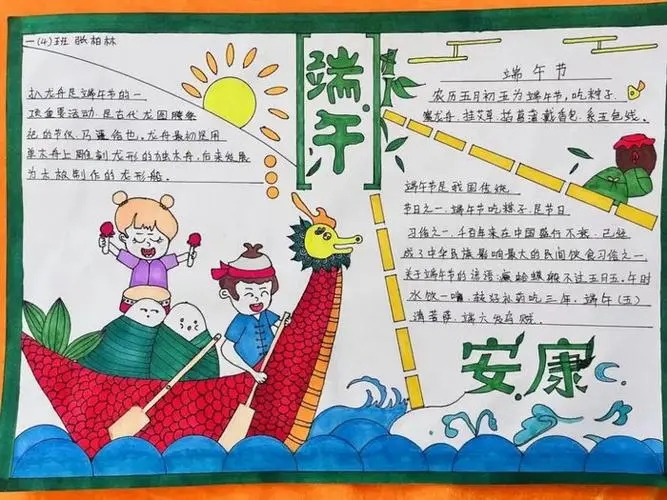 一(4)班 张柏林
扒龙舟是端午节的一
项重要活动,是古代龙图腾祭
祀的节仪,乃遗俗也。龙舟最初是用
单木舟上雕刻龙形的独木舟,后来发展
为木板制作的龙形船。
端午
端午节
农历五月初五为端午节,吃粽子
赛龙舟、挂艾草、插菖蒲、戴香包、系五色线。
端午节是我国传统
节日之一,端午节吃粽子,是节日
习俗之一,千百年来在中国盛行不衰,已经
成了中华民族影响最大的民间饮食习俗之一
关于端午节的谚语:癞蛤蟆躲不过五月五。午时
水饮一嘴,较好补药吃三年。端午(五)
请菩萨,端六发乌贼。
安康